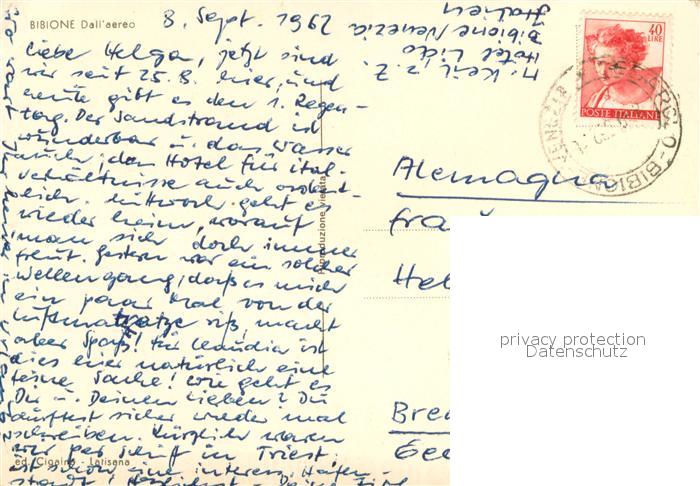 BIBIONE Dall'aereo
8. Sept. 1962
M. Keil z. Z.
Hotel Lido
Bibione/Venezia
Italien
40
LIRE
POSTE ITALIANE
Liebe Helga, jetzt sind
wir seit 25.8. hier, und
heute gibt es den 1. Regen-
tag. Der Sandstrand ist
wunderbar u. das Wasser
auch; das Hotel für ital.
Verhältnisse auch ordent-
lich. Mittwoch geht es
wieder heim, worauf
man sich doch immer
freut. Gestern war ein solcher
Wellengang, daß es mich
ein paar Mal von der
Luftmatratze riß, macht
aber Spaß! Für Claudia ist
dies hier natürlich eine
feine Sache! Wie geht es
Dir u. Deinen Lieben? Du
dürftest sicher wieder mal
schreiben. Kürzlich waren
wir per Schiff in Triest;
ist schon eine interess. Hafen-
stadt! Herzlichst Deine
Riproduzione vietata
ed. Cigaina - Latisana
Alemagna
Frau
Hel
Bre
BIBIONE
privacy protection
Datenschutz